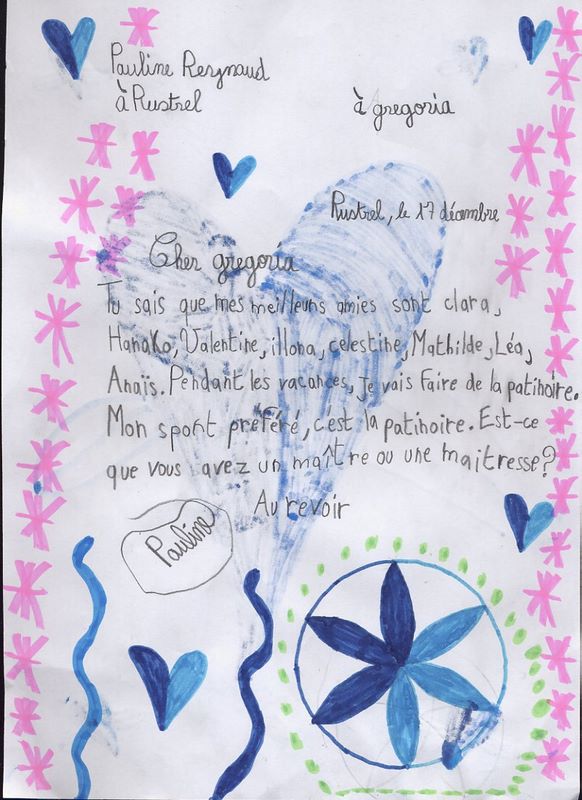 Pauline Reynaud
à Rustrel
à gregoria
Rustrel, le 17 décembre
Cher gregoria
Tu sais que mes meilleurs amies sont clara,
Hanako, Valentine, illona, celestine, Mathilde, Léa,
Anaïs. Pendant les vacances, je vais faire de la patinoire.
Mon sport préféré, c'est la patinoire. Est-ce
que vous avez un maître ou une maitresse?
Au revoir
Pauline